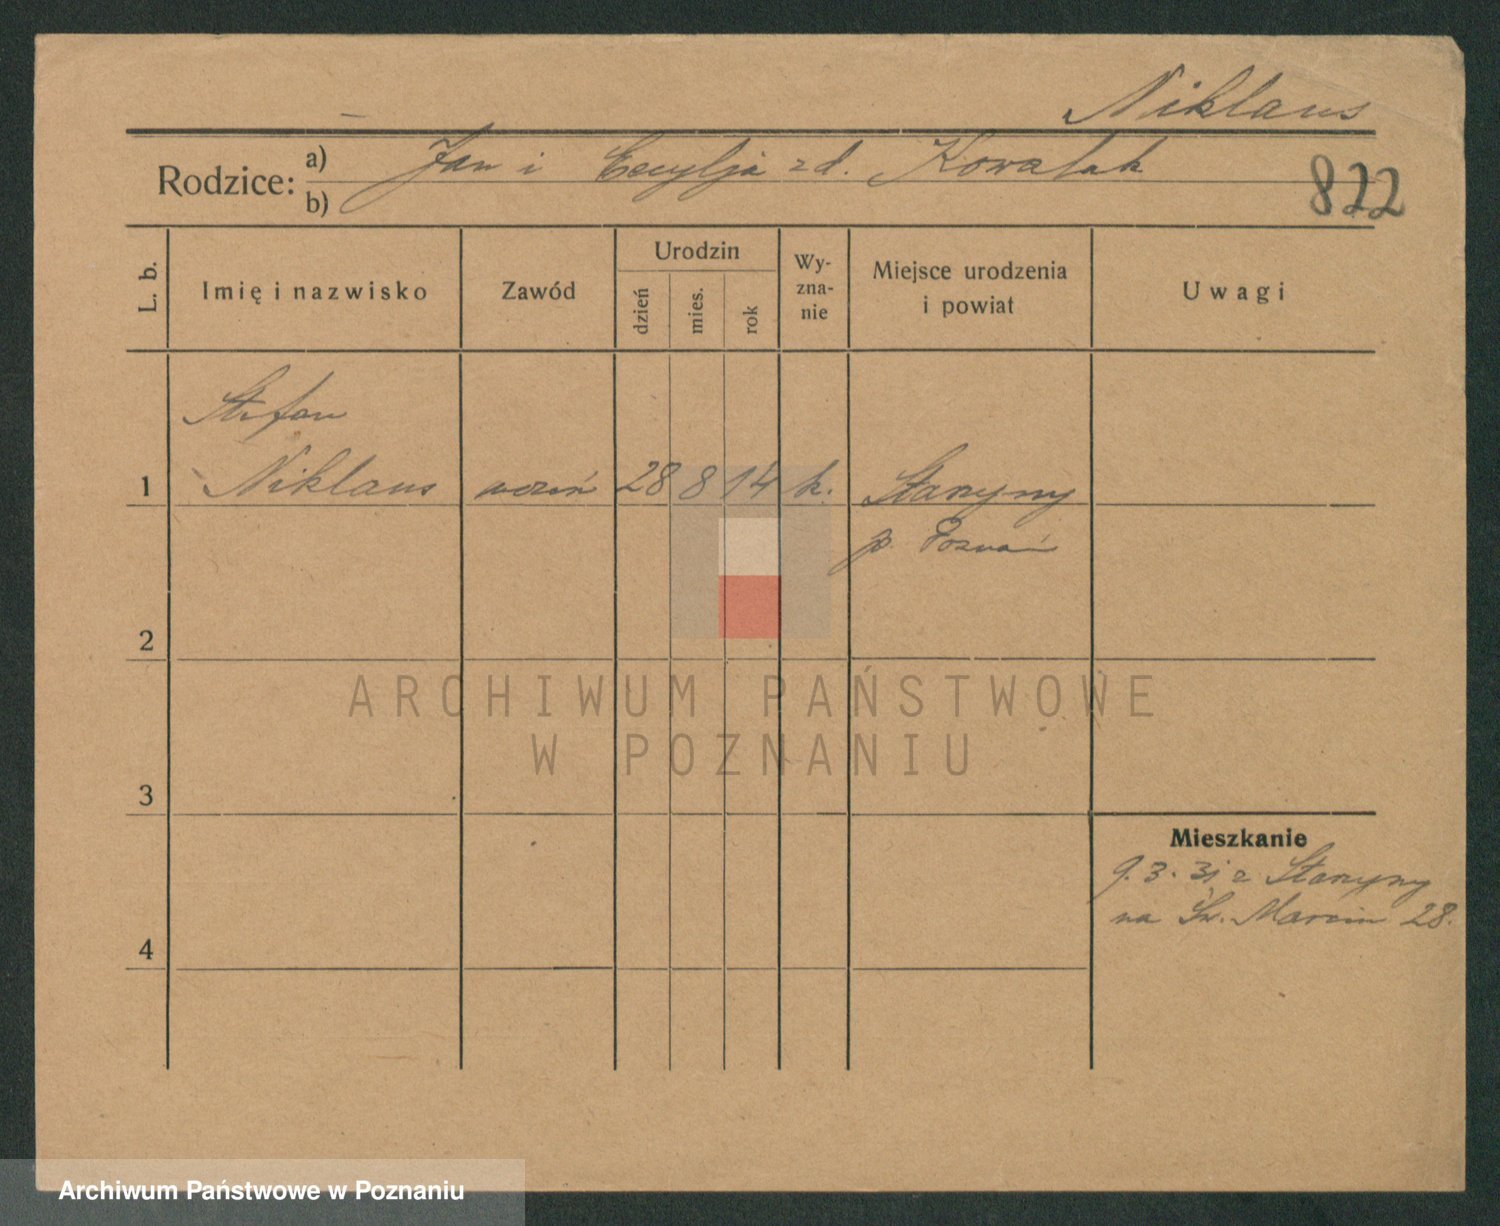 Niklaus
Rodzice: a) Jan i Cecylja zd. Kowalak
b)
822
L. b.
Imię i nazwisko
Zawód
Urodzin
dzień
mies.
rok
Wy-
zna-
nie
Miejsce urodzenia
i powiat
Uwagi
Stefan
1 Niklaus uczeń 28 8 14 k.
p. Poznań
2
3
4
Mieszkanie
9.3.31 z
na Św. Marcin 28.
ARCHIWUM PAŃSTWOWE
W POZNANIU
Archiwum Państwowe w Poznaniu